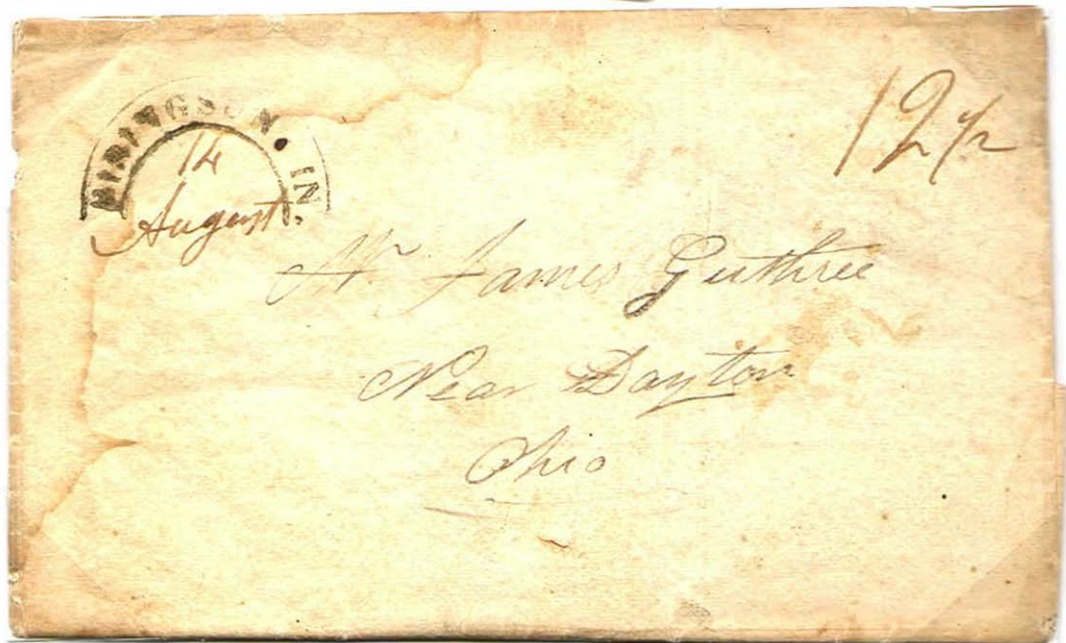 IN
14
August.
12 1/2
Mr James Guthree
Near Dayton
Ohio